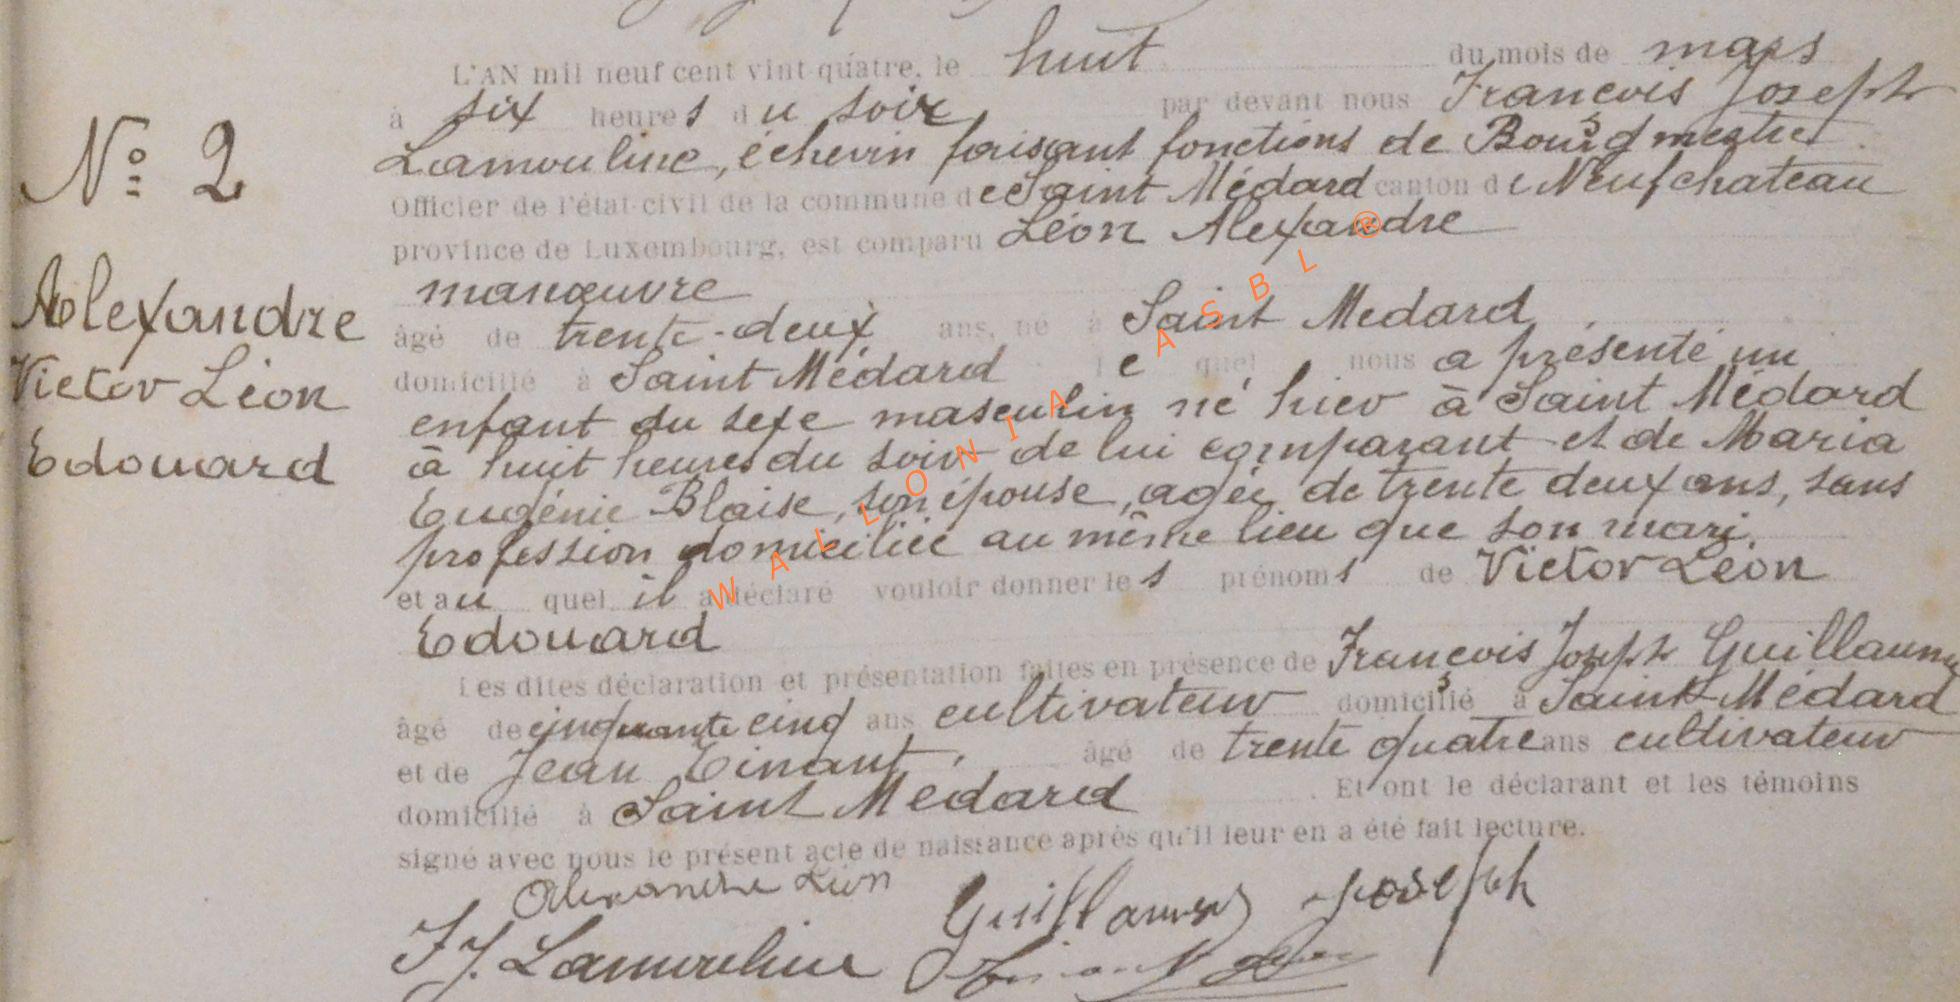 L'AN mil neuf cent vint-quatre, le huit du mois de mars
à six heures du soir par devant nous François Joseph
Lamouline, échevin faisant fonctions de Bourgmestre
Officier de l'état-civil de la commune de Saint Médard canton de Neufchateau
province de Luxembourg, est comparu Léon Alexandre
manœuvre
âgé de trente-deux ans, né à Saint Medard
domicilié à Saint Médard le quel nous a présenté un
enfant du sexe masculin né hier à Saint Médard
à huit heures du soir de lui comparant et de Maria
Eugénie Blaise, son épouse, agée de trente deux ans, sans
profession domiciliée au même lieu que son mari,
et au quel il a déclaré vouloir donner les prénoms de Victor Léon
Edouard
Les dites déclaration et présentation faites en présence de François Joseph Guillaume
âgé de cinquante cinq ans cultivateur domicilié à Saint-Médard
et de Jean Tinant, âgé de trente quatre ans cultivateur
domicilié à Saint Médard. Et ont le déclarant et les témoins
signé avec nous le présent acte de naissance après qu'il leur en a été fait lecture.
Alexandre Léon
Guillaume Joseph
F J. Lamouline
Tinant
N° 2
Alexandre
Victor Léon
Edouard
WALLONIA ASBL ®